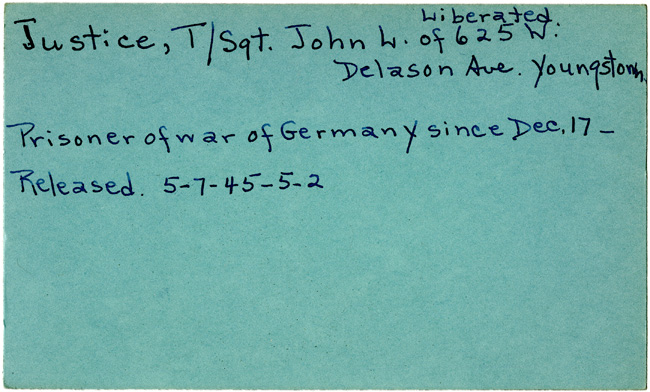 Liberated.
Justice, T/Sgt. John L. of 625 W.
Delason Ave. Youngstown.
Prisoner of war of Germany since Dec. 17 -
Released. 5-7-45-5-2